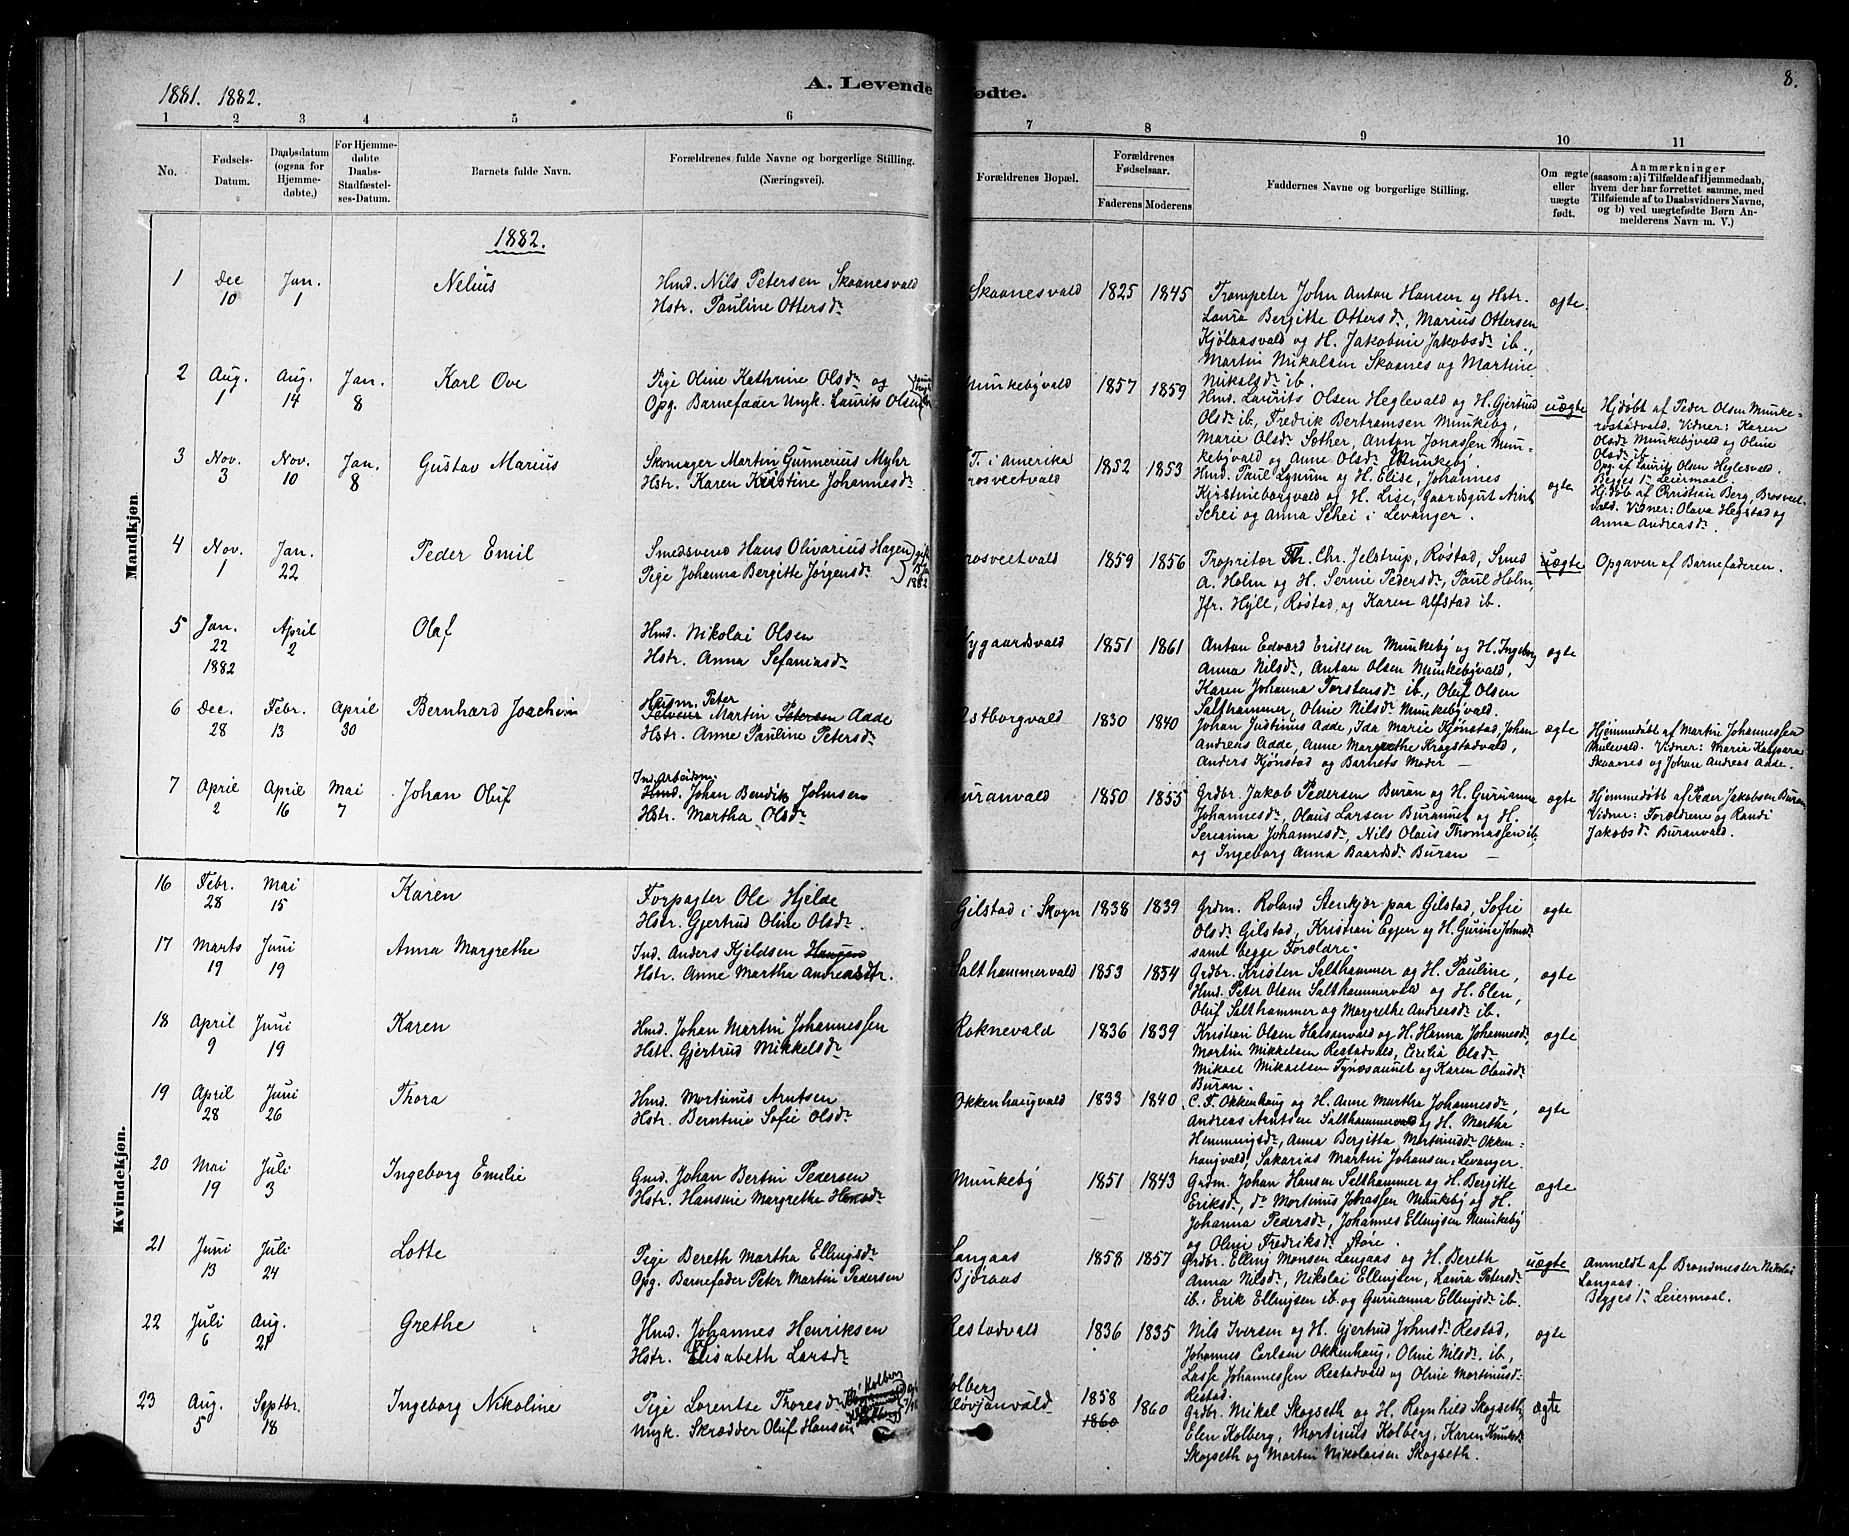 1881. 1882.
A. Levende
ødte.
8.
1 2 3 4 5 6 7 8 9 10 11
No.
Fødsels-
Datum.
Daabsdatum
(ogsaa for
Hjemme-
døbte.)
For Hjemme-
døbte
Daabs-
Stadfæstel-
ses-Datum.
Barnets fulde Navn.
Forældrenes fulde Navne og borgerlige Stilling.
(Næringsvei).
Forældrenes Bopæl.
Forældrenes
Fødselsaar.
Faderens Moderens
Faddernes Navne og borgerlige Stilling.
Om ægte
eller
uægte
født.
Anmærkninger
(saasom: a) i Tilfælde af Hjemmedaab,
hvem der har forrettet samme, med
Tilføiende af to Daabsvidners Navne,
og b) ved uægtefødte Børn An-
melderens Navn m. V.)
1882.
Mandkjøn
1 Dec 10 Jan. 1 Nelius
Hmd. Nils Petersen Skaanesvald
Hstr. Pauline Ottersdr
Skaanesvald 1825 1845
Trompeter John Anton Hansen og Hstr.
Laura Bergitte Ottersdr, Marius Ottersen
Kjølaasvald og H. Jakobine Jakobsdr ib.,
Martin Mikalsen Skaanes og Martine
Nikalsdr ib.
ægte
2 Aug. 1 Aug. 14 Jan. 8 Karl Ove
Pige Oline Kathrine Olsdr og
Opg. Barnefader Ungk. Laurits Olsen
Munkebyvald 1857 1859
Hmd. Laurits Olsen Heglevald og H. Gjertrud
Olsdr ib, Fredrik Bertramsen Munkeby,
Marie Olsdr Sether, Anton Jonassen Mun-
kebyvald og Anne Olsdr Munkeby.
uægte
Hjdøbt af Peder Olsen Munke-
rostadvald. Vidner: Karen
Olsdr Munkebyvald og Oline
Olsdr ib
Opg. af Laurits Olsen Heglesvald.
Begges 1ste Leiermaal.
3 Nov. 3 Nov. 10 Jan. 8 Gustav Marius
Skomager Martin Gunnerius Myhr
Hstr. Karen Kristine Johannesdr
F. T. i Amerika
rosveetvald 1852 1853
Hmd. Paul Lynum og H. Elise, Johannes
Kirstineborgvald og H. Lise, Gaardsgut Arnt
Schei og Anna Schei i Levanger.
ægte
Hjdøb af Christian Berg Brosveet-
vald. Vidner: Olava Hegstad og
Anna Andreasdr.
4 Nov. 1 Jan. 22 Peder Emil
Smedsvend Hans Olivarius Hagen
Pige Johanna Bergitte Jørgensdr
1882
rosveetvald 1859 1856
Propritær Th. Chr. Jelstrup, Røstad, Smed
A. Holm og H. Serine Pedersdr, Paul Holm,
Jfr. Hyll, Røstad, og Karen Alfstad ib.
uægte
Opgaven af Barnefaderen.
5 Jan. 22 1882 April 2 Olaf
Hmd. Nikolai Olsen
Hstr. Anna Sefaniasdr
Nygaardsvald 1851 1861
Anton Edvard Eriksen Munkeby og H. Ingeborg
Anna Nilsdr, Anton Olsen Munkebyvald,
Karen Johanna Torstensdr ib, Oluf Olsen
Salthammer, Oline Nilsdr Munkebyvald.
ægte
6 Dec. 28 Febr. 13 April 30 Bernhard Joachim
Husm. Peter
Martin Petersen Adde
Hstr. Anne Pauline Petersdr
stborgvald 1830 1840
Johan Justinus Adde, Ida Marie Kjønstad, Johan
Andreas Adde, Anne Margrethe Kragstadvald,
Anders Kjønstad og Barnets Moder —
ægte
Hjemmedøbt af Martin Johannessen
Mulevald. Vidner: Maria Kaspara
Skaanes og Johan Andreas Adde.
7 April 2 April 16 Mai 7 Johan Oluf
Ind. Arbeidsm.
Hmd. Johan Bendik Johnsen
Hstr. Martha Olsdr
uranvald 1850 1855
Grdbr. Jakob Pedersen Buran og H. Gurianna
Johannesdr, Olaus Larsen Burannet og H.
Serianna Johannesdr, Nils Olaus Thomassen ib,
og Ingeborg Anna Baardsdr Buran —
ægte
Hjemmedøbt af Peder Jakobsen Buran
Vidner: Forældrene og Randi
Jakobsdr Buranvald.
Kvindekjøn.
16 Febr. 28 Mai 15 Karen
Forpagter Ole Hjelde
Hstr. Gjertrud Oline Olsdr
Gilstad i Skogn 1838 1839
Grdm. Roland Stenkjær paa Gilstad, Sofie
Olsdr Gilstad, Kristian Eggen og H. Gurine Johnsdr
samt begge Forældre.
ægte
17 Marts 19 Juni 19 Anna Margrethe
Ind. Anders Kjeldsen Haugen
Hstr. Anne Martha Andreasdtr.
Salthammervald 1853 1854
Grdbr. Kristen Salthammer og H. Pauline,
Hmd. Peter Olsen Salthammervald og H. Elen,
Oluf Salthammer og Margrethe Andreasdr ib.
ægte
18 April 9 Juni 19 Karen
Hmd. Johan Martin Johannessen
Hstr. Gjertrud Mikkelsdr
Roknevald 1836 1839
Kristian Olsen Halsanvald og H. Hanna Johannesdr,
Martin Mikkelsen Restadvald, Cecilia Olsdr
Mikael Mikaelsen Tynesaunet og Karen Olausdr
Buran.
ægte
19 April 28 Juni 26 Thora
Hmd. Mortinus Arntsen
Hstr. Berntine Sofie Olsdr
Okkenhaugvald 1833 1840
C. F. Okkenhaug og H. Anne Martha Johannesdr,
Andreas Arntsen Salthammervald og H. Martha
Hemmingsdr, Anna Bergitta Mortinusdr Okken-
haugvald, Sakarias Martin Johansen: Levanger.
ægte
20 Mai 19 Juli 3 Ingeborg Emilie
Gmd. Johan Bertin Pedersen
Hstr. Hansine Margrethe
Munkeby 1851 1843
Grdm. Johan Hansen Salthammer og H. Bergitte
Eriksdr, do Mortinus Jonassen Munkeby og H.
Johanna Pedersdr, Johannes Ellingsen Munkeby
og Oline Fredriksdr Støre.
ægte
21 Juni 13 Juli 24 Lotte
Pige Bereth Martha Ellingsdr
Opg. Barnefader Peter Martin Pedersen
Langaas
Bjøraas 1858 1857
Grdbr. Elling Monsen Langaas og H. Bereth
Anna Nilsdr, Nikolai Ellingsen, Laura Petersdr
ib, Erik Ellingsen ib. og Gurianna Ellingsdr ib.
uægte
Anmeldt af Brandmester Nikolai
Langaas.
Begges 1ste Leiermaal.
22 Juli 6 Aug. 21 Grethe
Hmd. Johannes Henriksen
Hstr. Elisabeth Larsdr
Restadvald 1836 1835
Nils Iversen og H. Gjertrud Johnsdr Restad,
Johannes Carlsen Okkenhaug, Oline Nilsdr ib,
Lasse Johannessen Restadvald og Oline Mortinusdr
Restad.
ægte
23 Aug. 5 Septbr. 18 Ingeborg Nikoline
Pige Lorentse Thoresdr Kolberg
Ungk. Skrædder Oluf Hansen
olberg
løvjanvald 1858 1860 1860
Grdbr. Mikal Skogseth og H. Ragnhild Skogseth,
Elen Kolberg, Mortinus Kolberg, Karen Knudsdr
Skogseth og Martin Nikolaisen Skogseth.
ægte